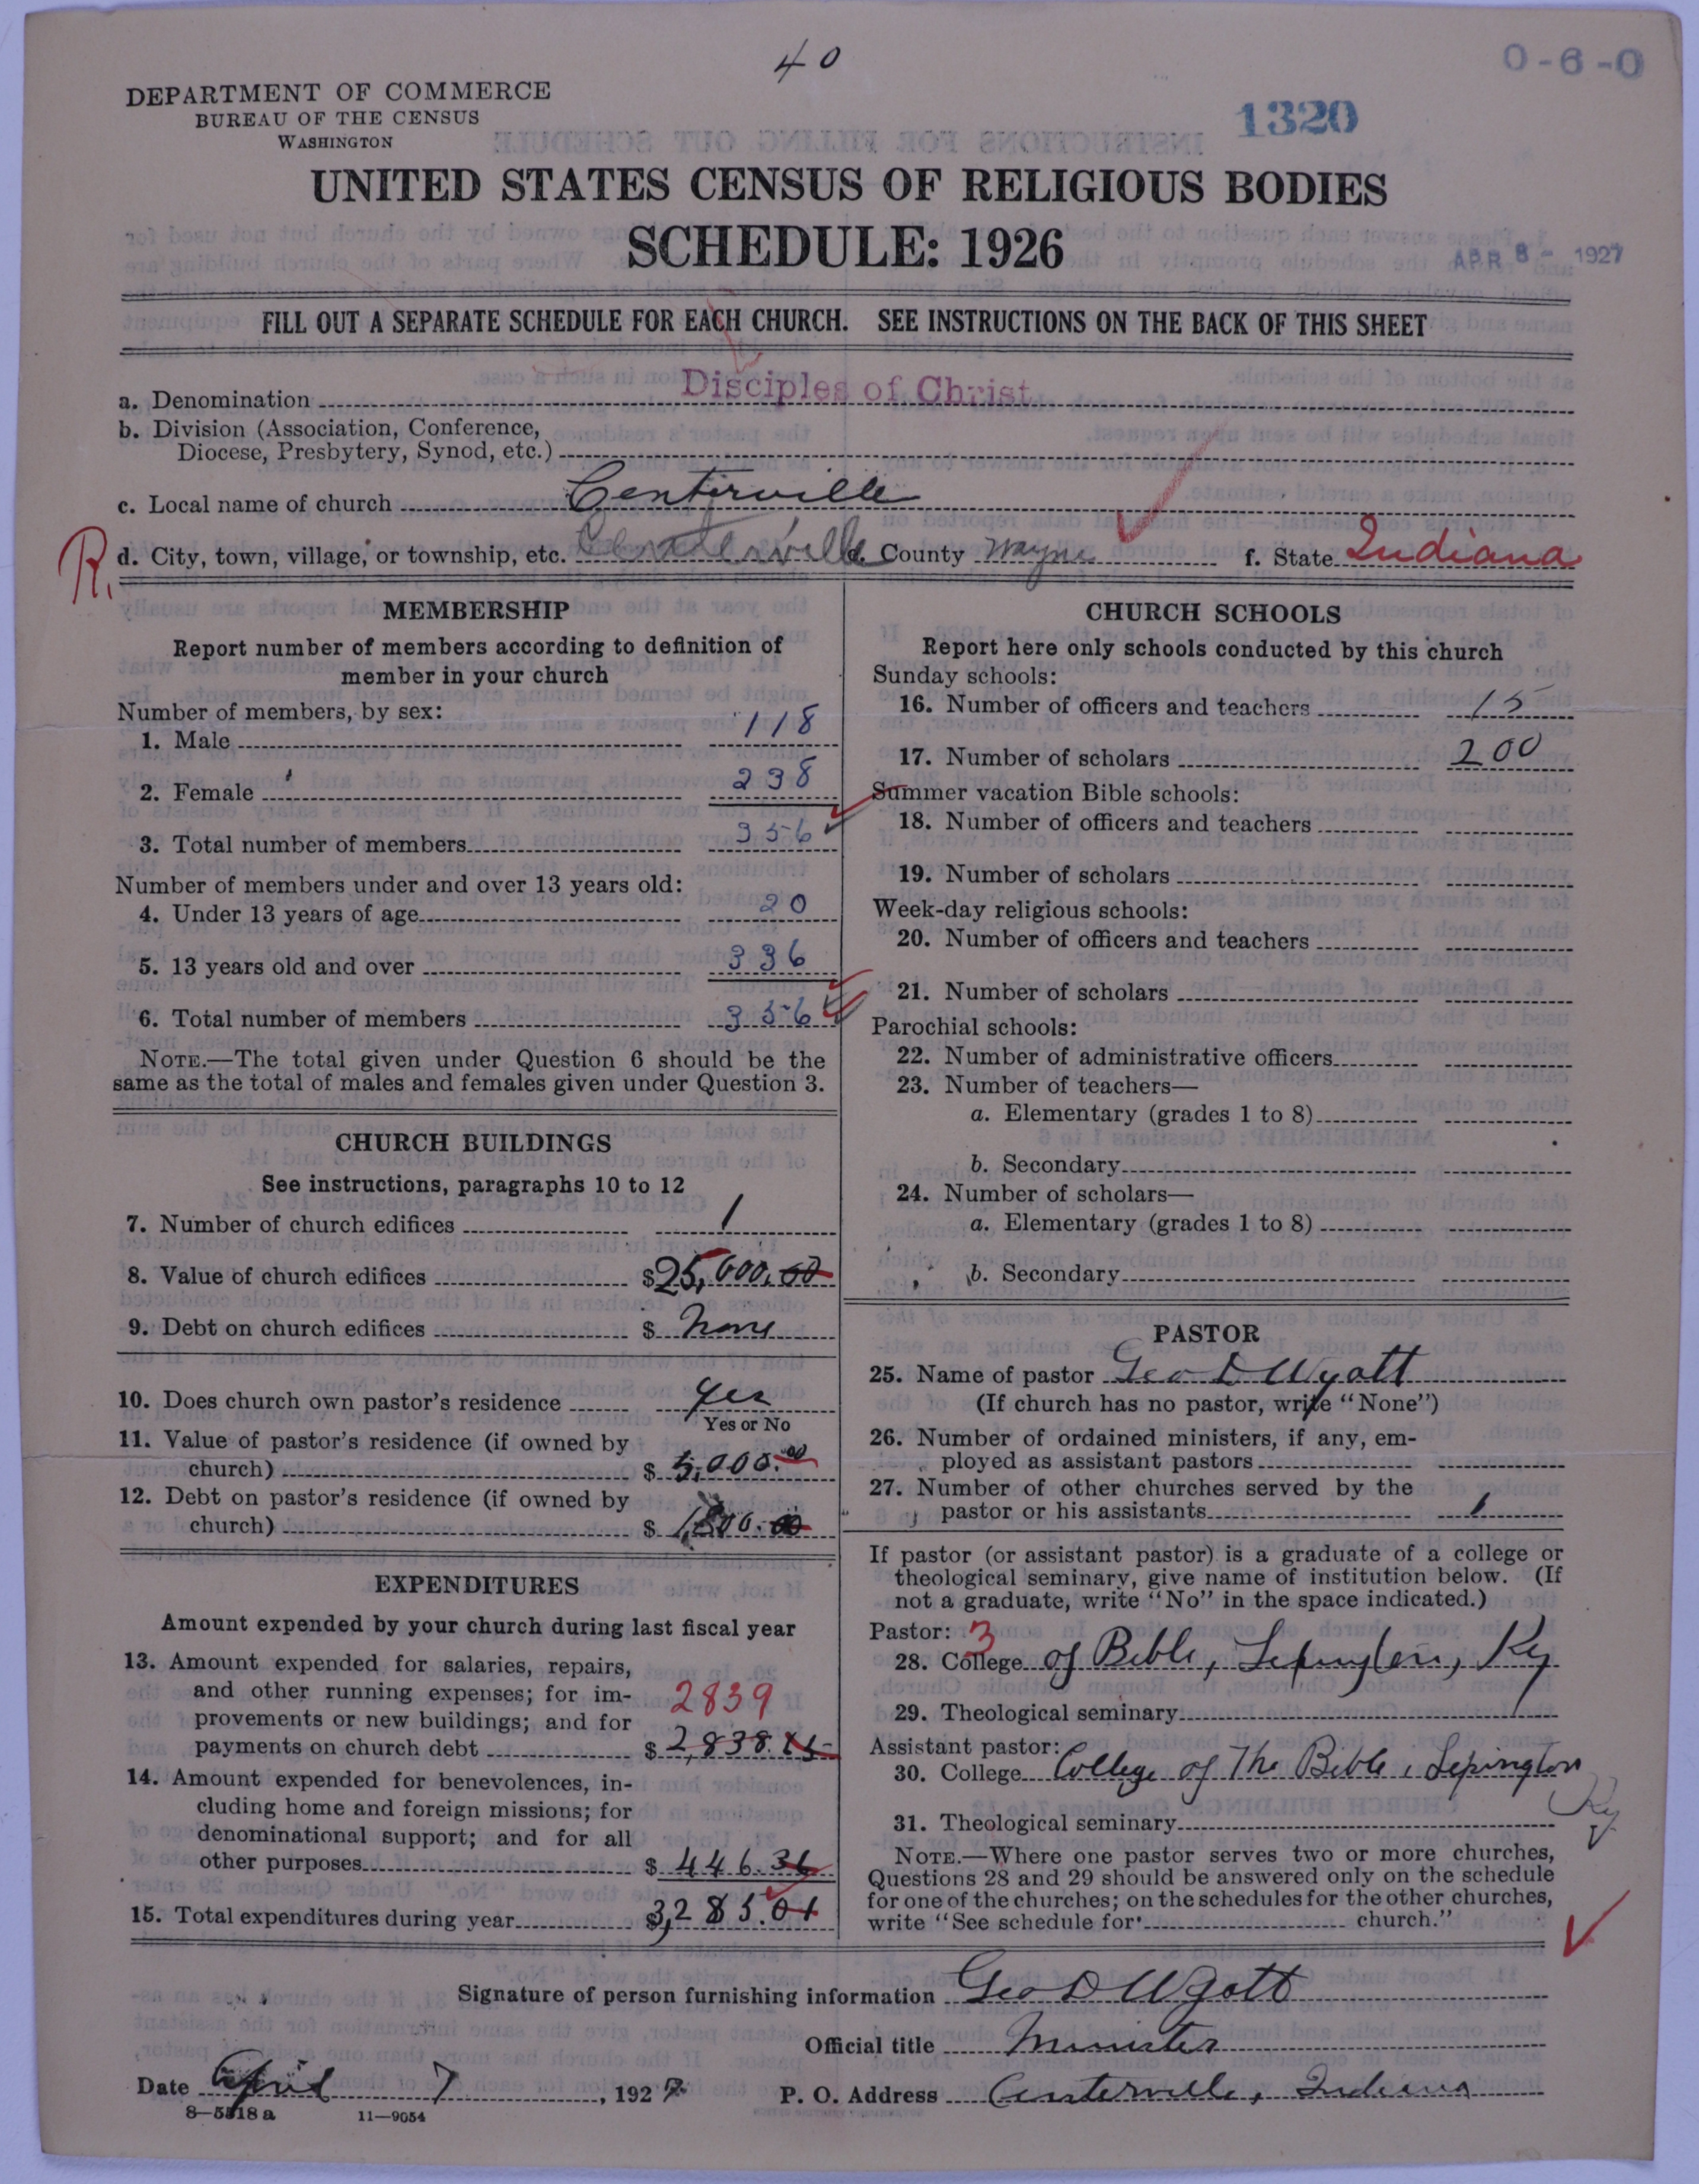 40
0-6-0
DEPARTMENT OF COMMERCE
BUREAU OF THE CENSUS
WASHINGTON
1320
UNITED STATES CENSUS OF RELIGIOUS BODIES
SCHEDULE: 1926
APR 8 - 1927
FILL OUT A SEPARATE SCHEDULE FOR EACH CHURCH. SEE INSTRUCTIONS ON THE BACK OF THIS SHEET
a. Denomination Disciples of Christ
b. Division (Association, Conference,
Diocese, Presbytery, Synod, etc.)
c. Local name of church Centerville
R. d. City, town, village, or township, etc. Centerville e. County Wayne f. State Indiana
MEMBERSHIP
Report number of members according to definition of
member in your church
Number of members, by sex:
1. Male 118
2. Female 238
3. Total number of members 356
Number of members under and over 13 years old:
4. Under 13 years of age 20
5. 13 years old and over 336
6. Total number of members 356
NOTE.—The total given under Question 6 should be the
same as the total of males and females given under Question 3.
CHURCH BUILDINGS
See instructions, paragraphs 10 to 12
7. Number of church edifices 1
8. Value of church edifices $25,000.00
9. Debt on church edifices $ None
10. Does church own pastor's residence yes
Yes or No
11. Value of pastor's residence (if owned by
church) $ 5,000.00
12. Debt on pastor's residence (if owned by
church) $
EXPENDITURES
Amount expended by your church during last fiscal year
13. Amount expended for salaries, repairs,
and other running expenses; for im-
provements or new buildings; and for 2839
payments on church debt $ 2,838.
14. Amount expended for benevolences, in-
cluding home and foreign missions; for
denominational support; and for all
other purposes $ 446.36
15. Total expenditures during year $3,285.01
CHURCH SCHOOLS
Report here only schools conducted by this church
Sunday schools:
16. Number of officers and teachers 15
17. Number of scholars 200
Summer vacation Bible schools:
18. Number of officers and teachers
19. Number of scholars
Week-day religious schools:
20. Number of officers and teachers
21. Number of scholars
Parochial schools:
22. Number of administrative officers
23. Number of teachers—
a. Elementary (grades 1 to 8)
b. Secondary
24. Number of scholars—
a. Elementary (grades 1 to 8)
b. Secondary
PASTOR
25. Name of pastor Geo D Wyatt
(If church has no pastor, write "None")
26. Number of ordained ministers, if any, em-
ployed as assistant pastors
27. Number of other churches served by the
pastor or his assistants 1
If pastor (or assistant pastor) is a graduate of a college or
theological seminary, give name of institution below. (If
not a graduate, write "No" in the space indicated.)
Pastor: 3
28. College of Bible, Lexington, Ky
29. Theological seminary
Assistant pastor:
30. College College of The Bible, Lexington
Ky
31. Theological seminary
NOTE.—Where one pastor serves two or more churches,
Questions 28 and 29 should be answered only on the schedule
for one of the churches; on the schedules for the other churches,
write "See schedule for church."
Signature of person furnishing information Geo D Wyatt
Official title Minister
Date April 7, 1927 P. O. Address Centerville, Indiana
8—5518 a 11—9054